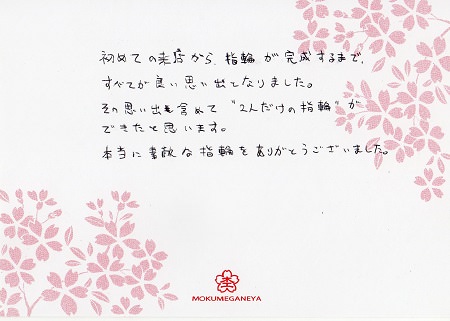 初めての来店から、指輪が完成するまで、
すべてが良い思い出となりました。
その思い出も含めて "2人だけの指輪" が
できたと思います。
本当に素敵な指輪をありがとうございました。
MOKUMEGANEYA